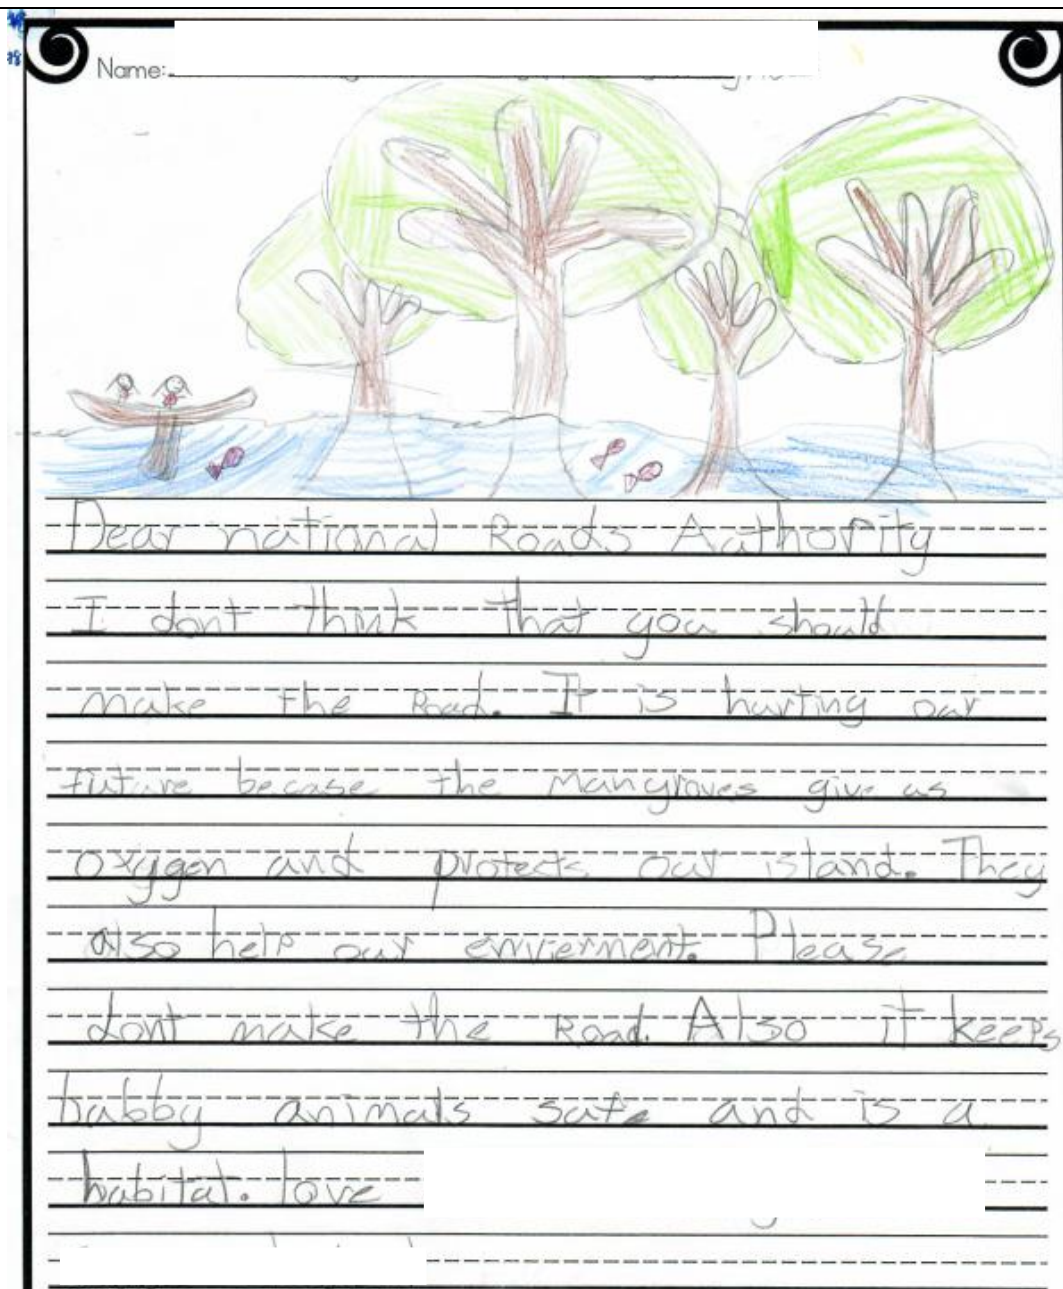 Name:
Dear national Roads Authority
I dont think that you should
make the Road. It is hurting our
future becase the Mangroves give us
oxygen and protects our island. They
also help our envierment. Please
dont make the Road. Also it keeps
babby animals safe and is a
habitat. love